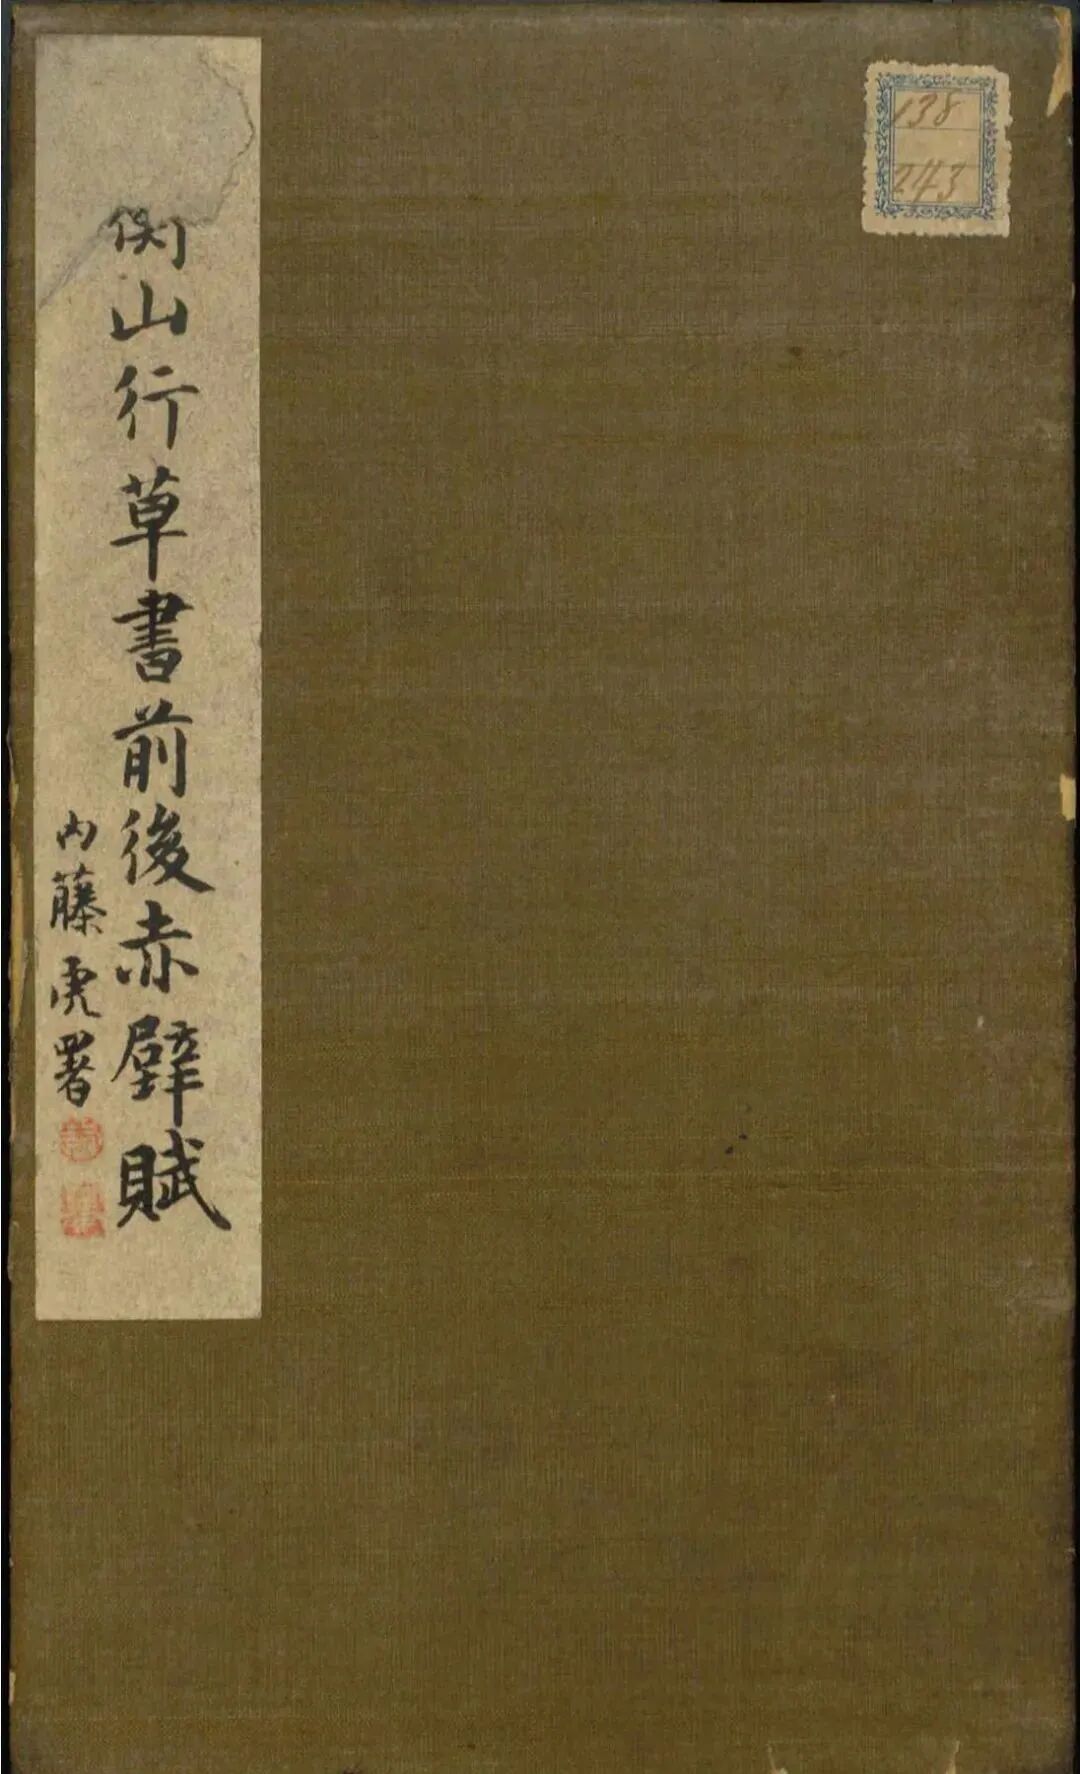 138
243
衡山行草書前後赤壁賦
内藤虎署